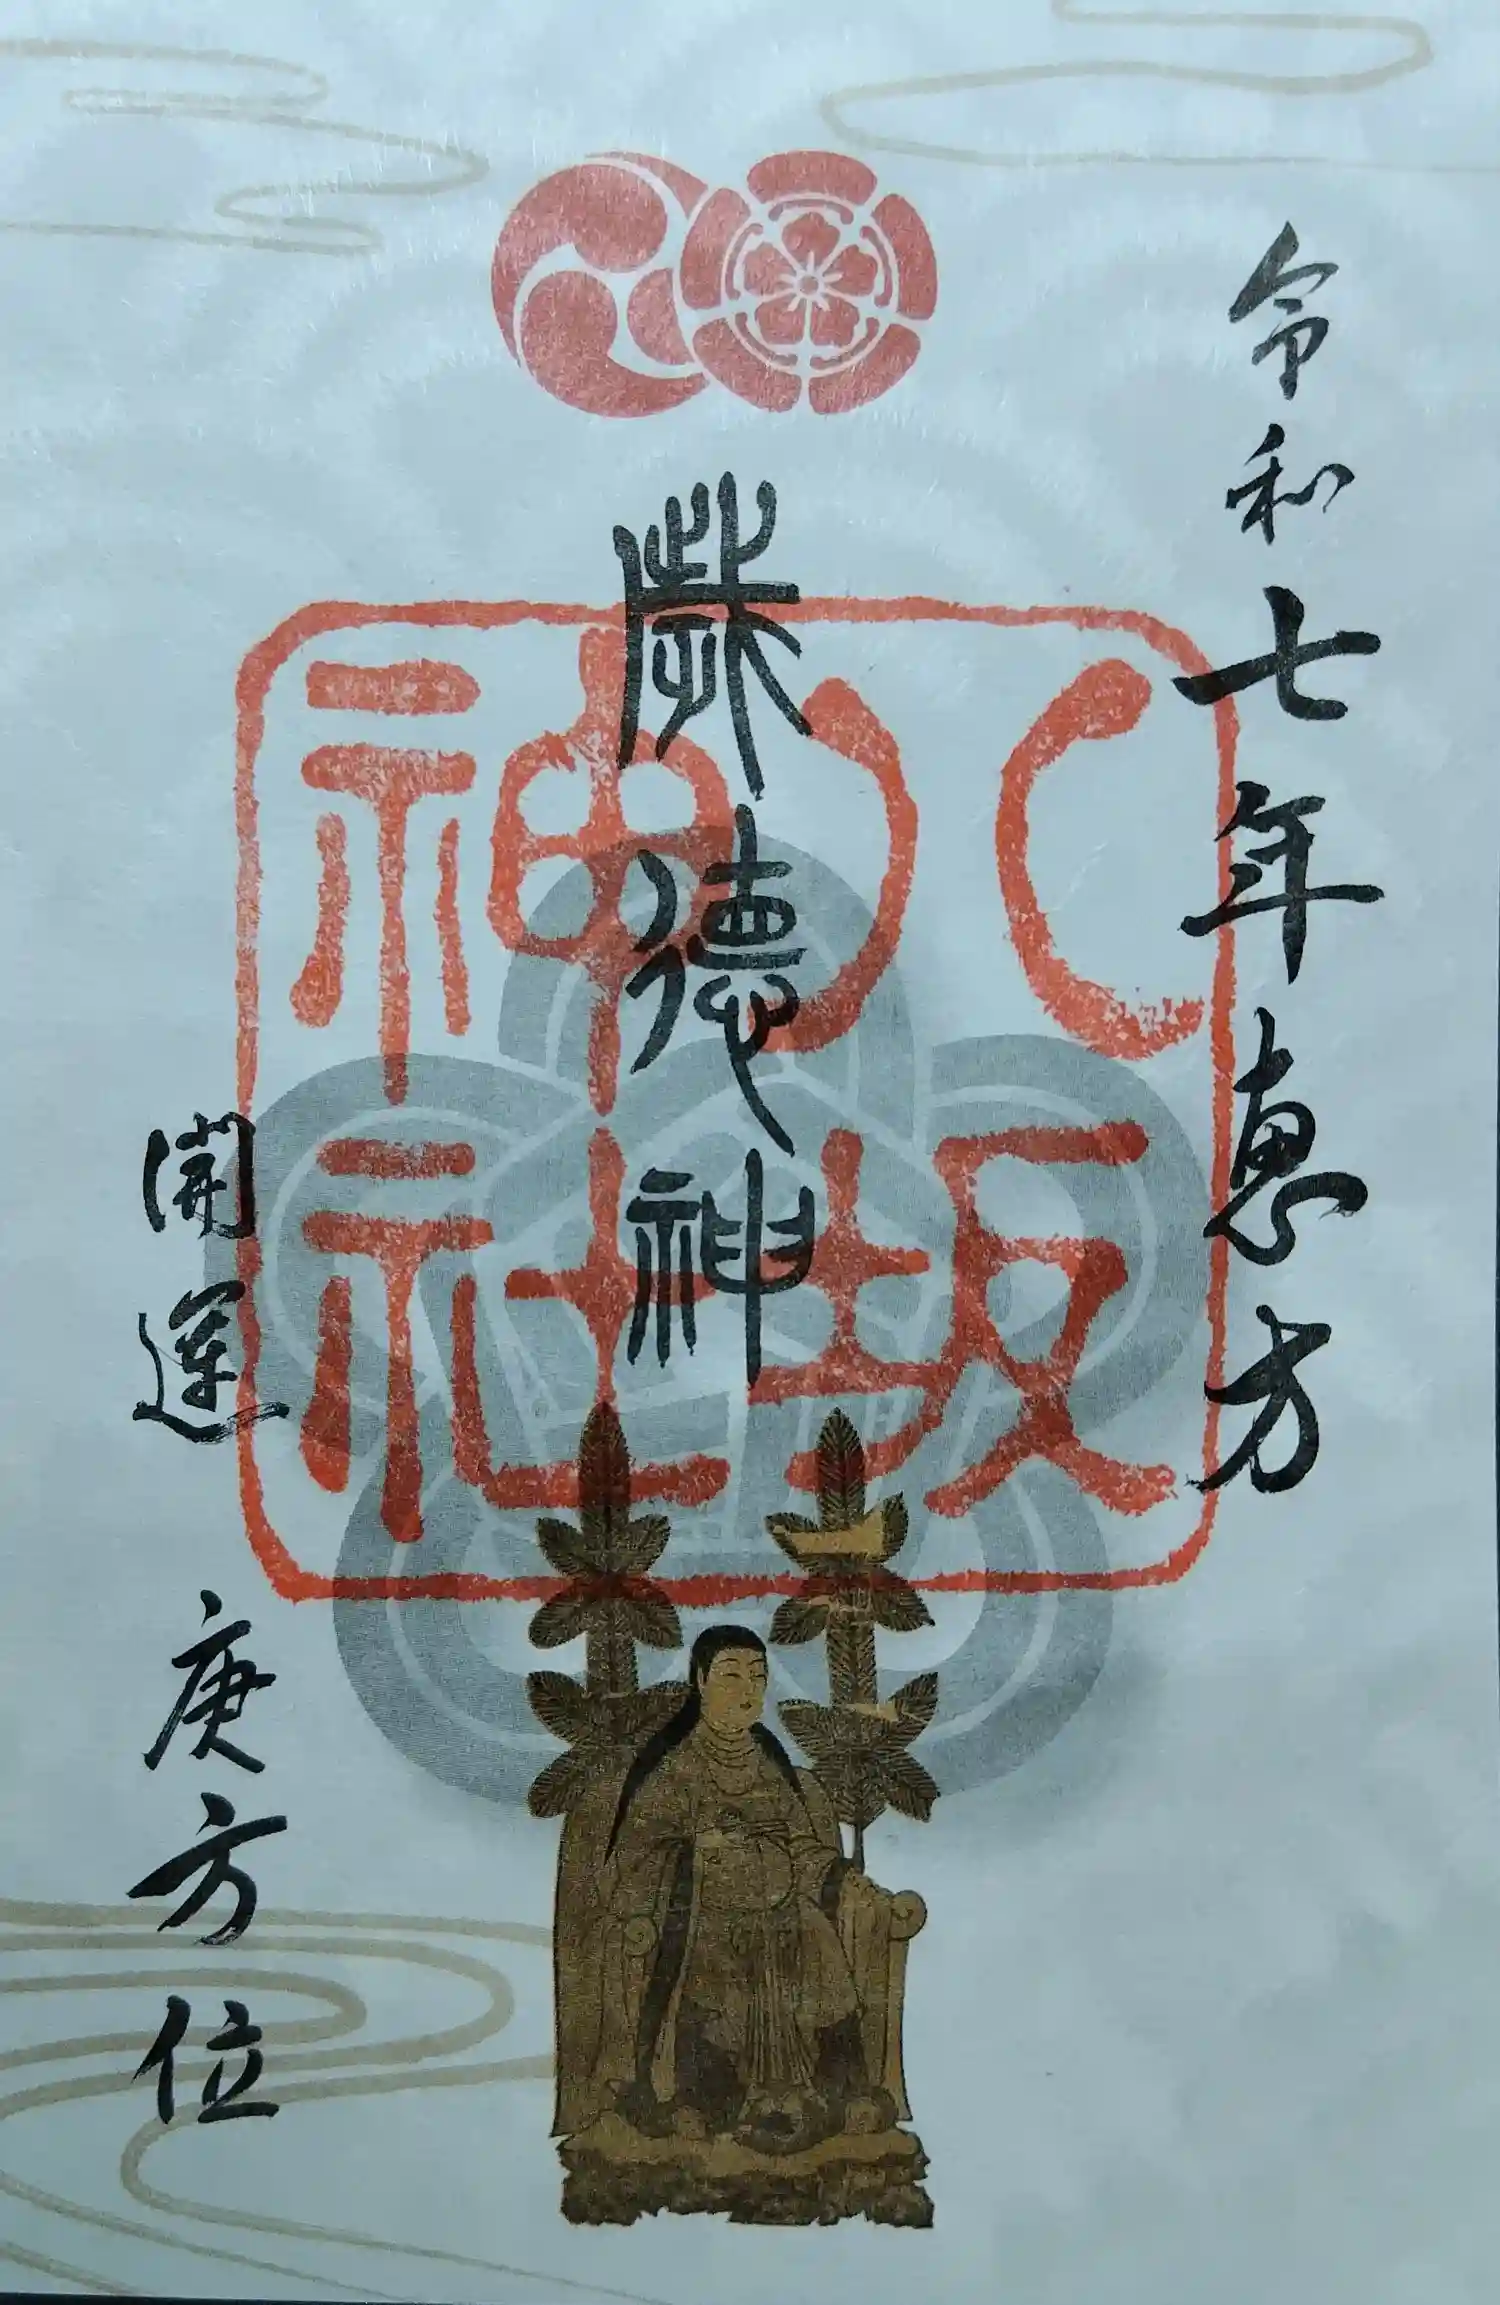 令和七年恵方
歳徳神
八坂
神社
開運 庚方位